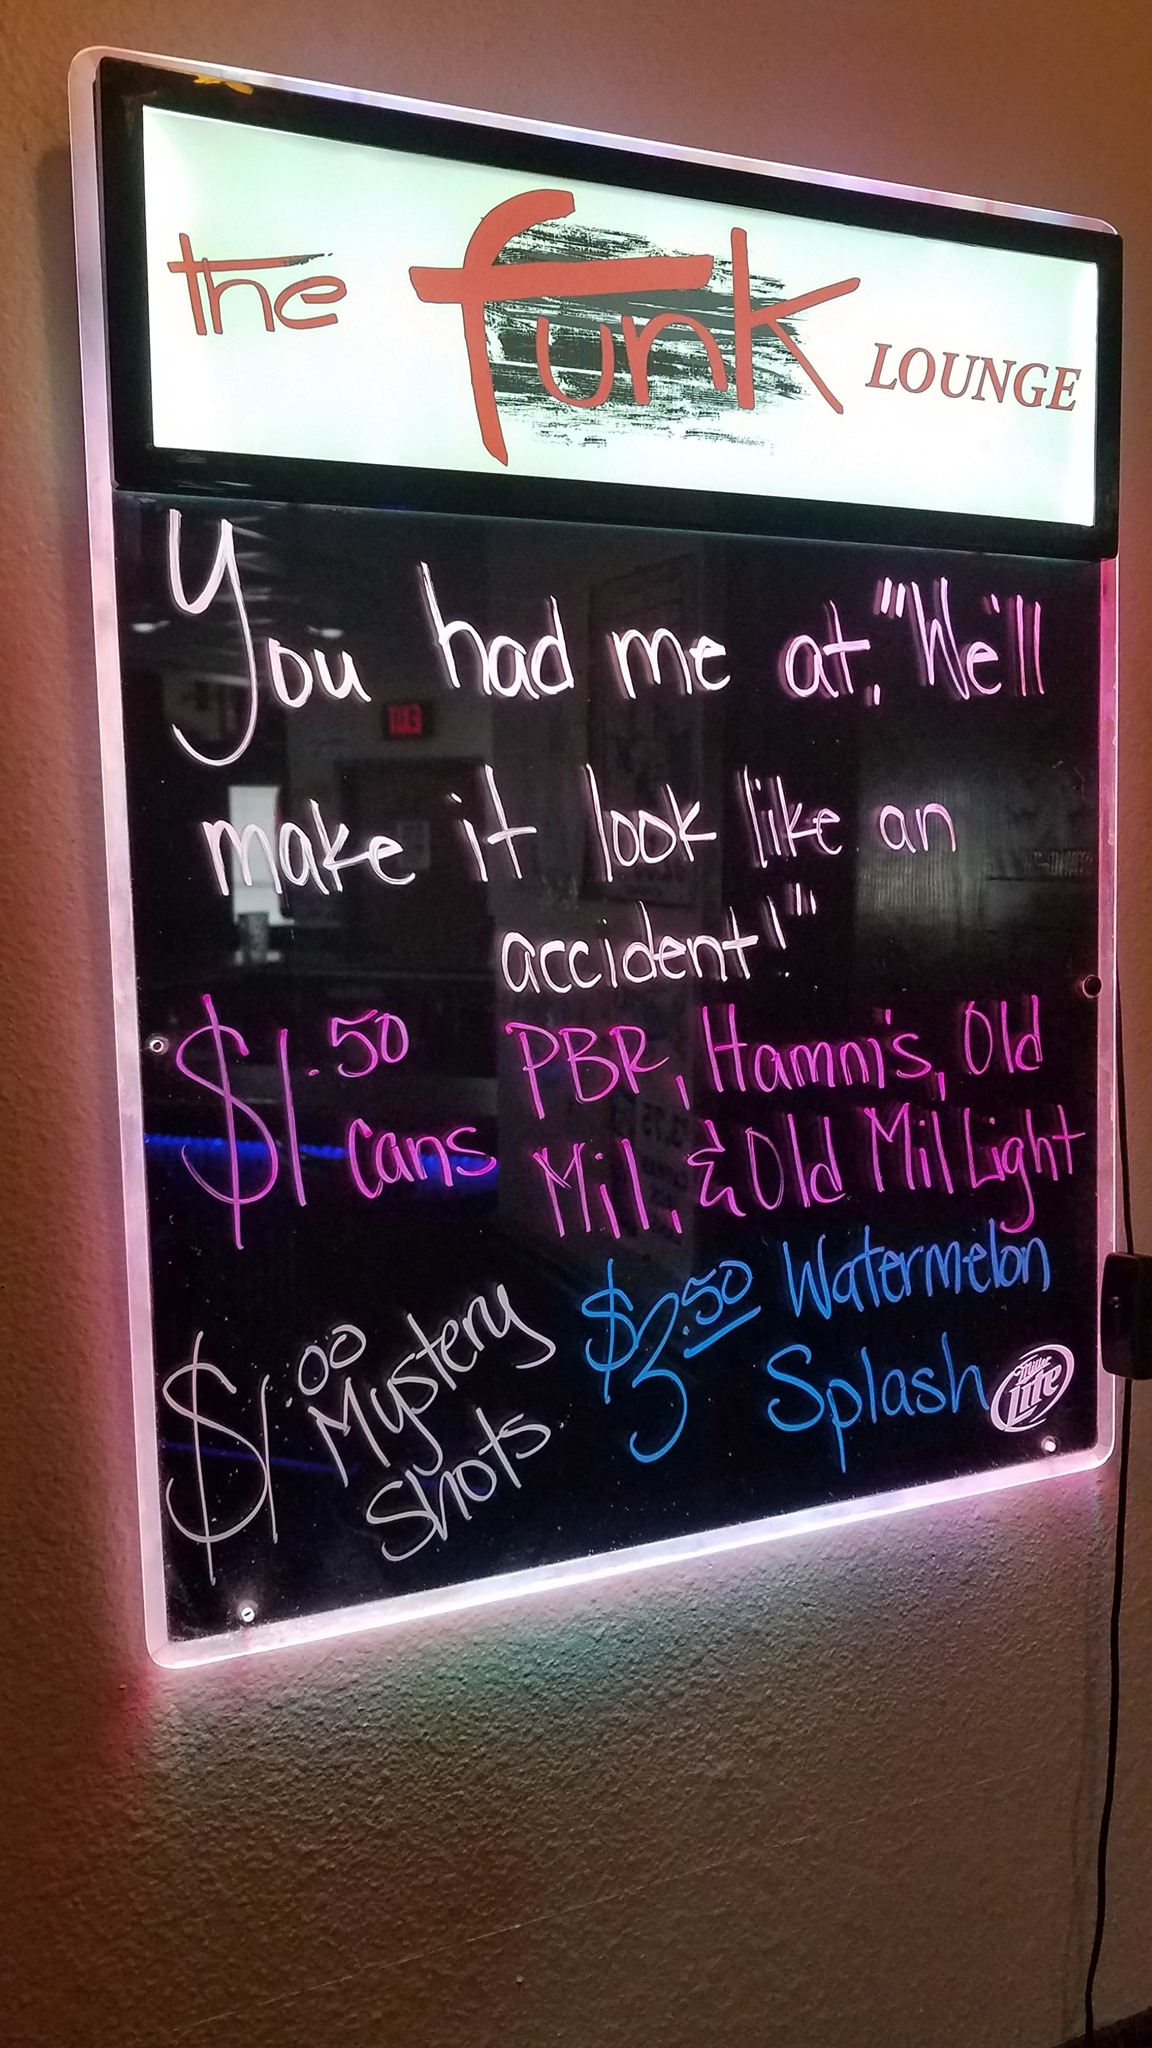 the funk LOUNGE
You had me at, "'We'll
make it look like an
accident!'"
$1.50 cans
PBR, Hamm's, Old
Mil, & Old Mil Light
$1.00 Mystery
Shots
$3.50 Watermelon
Splash
Miller
Lite
EXIT